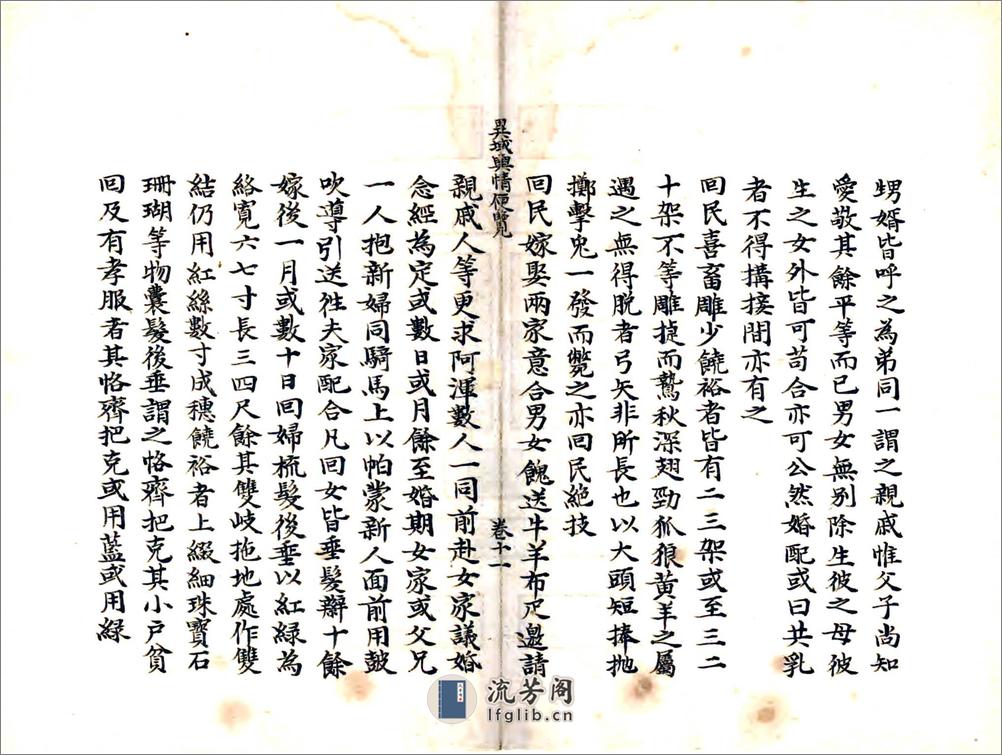 甥婿皆呼之為弟同一謂之親戚惟父子尚知
愛敬其餘平等而已男女無别除生彼之母彼
生之女外皆可苟合亦可公然婚配或曰共乳
者不得搆接間亦有之
回民喜畜雕少饒裕者皆有二三架或至三二
十架不等雕捷而鷙秋深翅勁狐狼黄羊之屬
遇之無得脱者弓矢非所長也以大頭短捧抛
擲擊兎一發而斃之亦回民絶技
異域輿情便覽
卷十一
回民嫁娶兩家意合男女餽送牛羊布疋邀請
親戚人等更求阿渾數人一同前赴女家議婚
念經為定或數日或月餘至婚期女家或父兄
一人抱新婦同騎馬上以帕蒙新人面前用皷
吹導引送徃夫家配合凡回女皆垂髮辮十餘
嫁後一月或數十日回婦梳髮後垂以紅緑為
絡寛六七寸長三四尺餘其雙岐拖地處作雙
結仍用紅絲數寸成穗饒裕者上綴細珠寳石
珊瑚等物囊髮後垂謂之恪齊把克其小户貧
回及有孝服者其恪齊把克或用藍或用緑
流芳阁
lfglib.cn